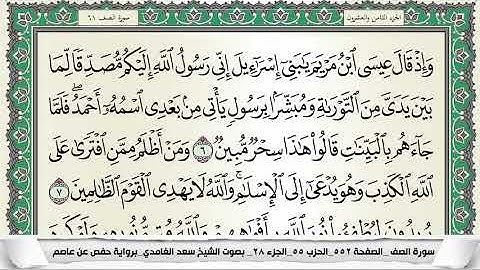 الجزء الثامن والعشرون
سورة الصف ٦١
وَإِذْ قَالَ عِيسَى ٱبْنُ مَرْيَمَ يَٰبَنِىٓ إِسْرَٰٓءِيلَ إِنِّى رَسُولُ ٱللَّهِ إِلَيْكُم مُّصَدِّقًا لِّمَا
بَيْنَ يَدَىَّ مِنَ ٱلتَّوْرَىٰةِ وَمُبَشِّرًۢا بِرَسُولٍ يَأْتِى مِنۢ بَعْدِى ٱسْمُهُۥٓ أَحْمَدُ ۖ فَلَمَّا
جَآءَهُم بِٱلْبَيِّنَٰتِ قَالُوا۟ هَٰذَا سِحْرٌ مُّبِينٌ ٦ وَمَنْ أَظْلَمُ مِمَّنِ ٱفْتَرَىٰ عَلَى
ٱللَّهِ ٱلْكَذِبَ وَهُوَ يُدْعَىٰٓ إِلَى ٱلْإِسْلَٰمِ ۚ وَٱللَّهُ لَا يَهْدِى ٱلْقَوْمَ ٱلظَّٰلِمِينَ ٧
سورة الصف _الصفحة ٥٥٢_ الحزب ٥٥_الجزء ٢٨_ بصوت الشيخ سعد الغامدي_برواية حفص عن عاصم